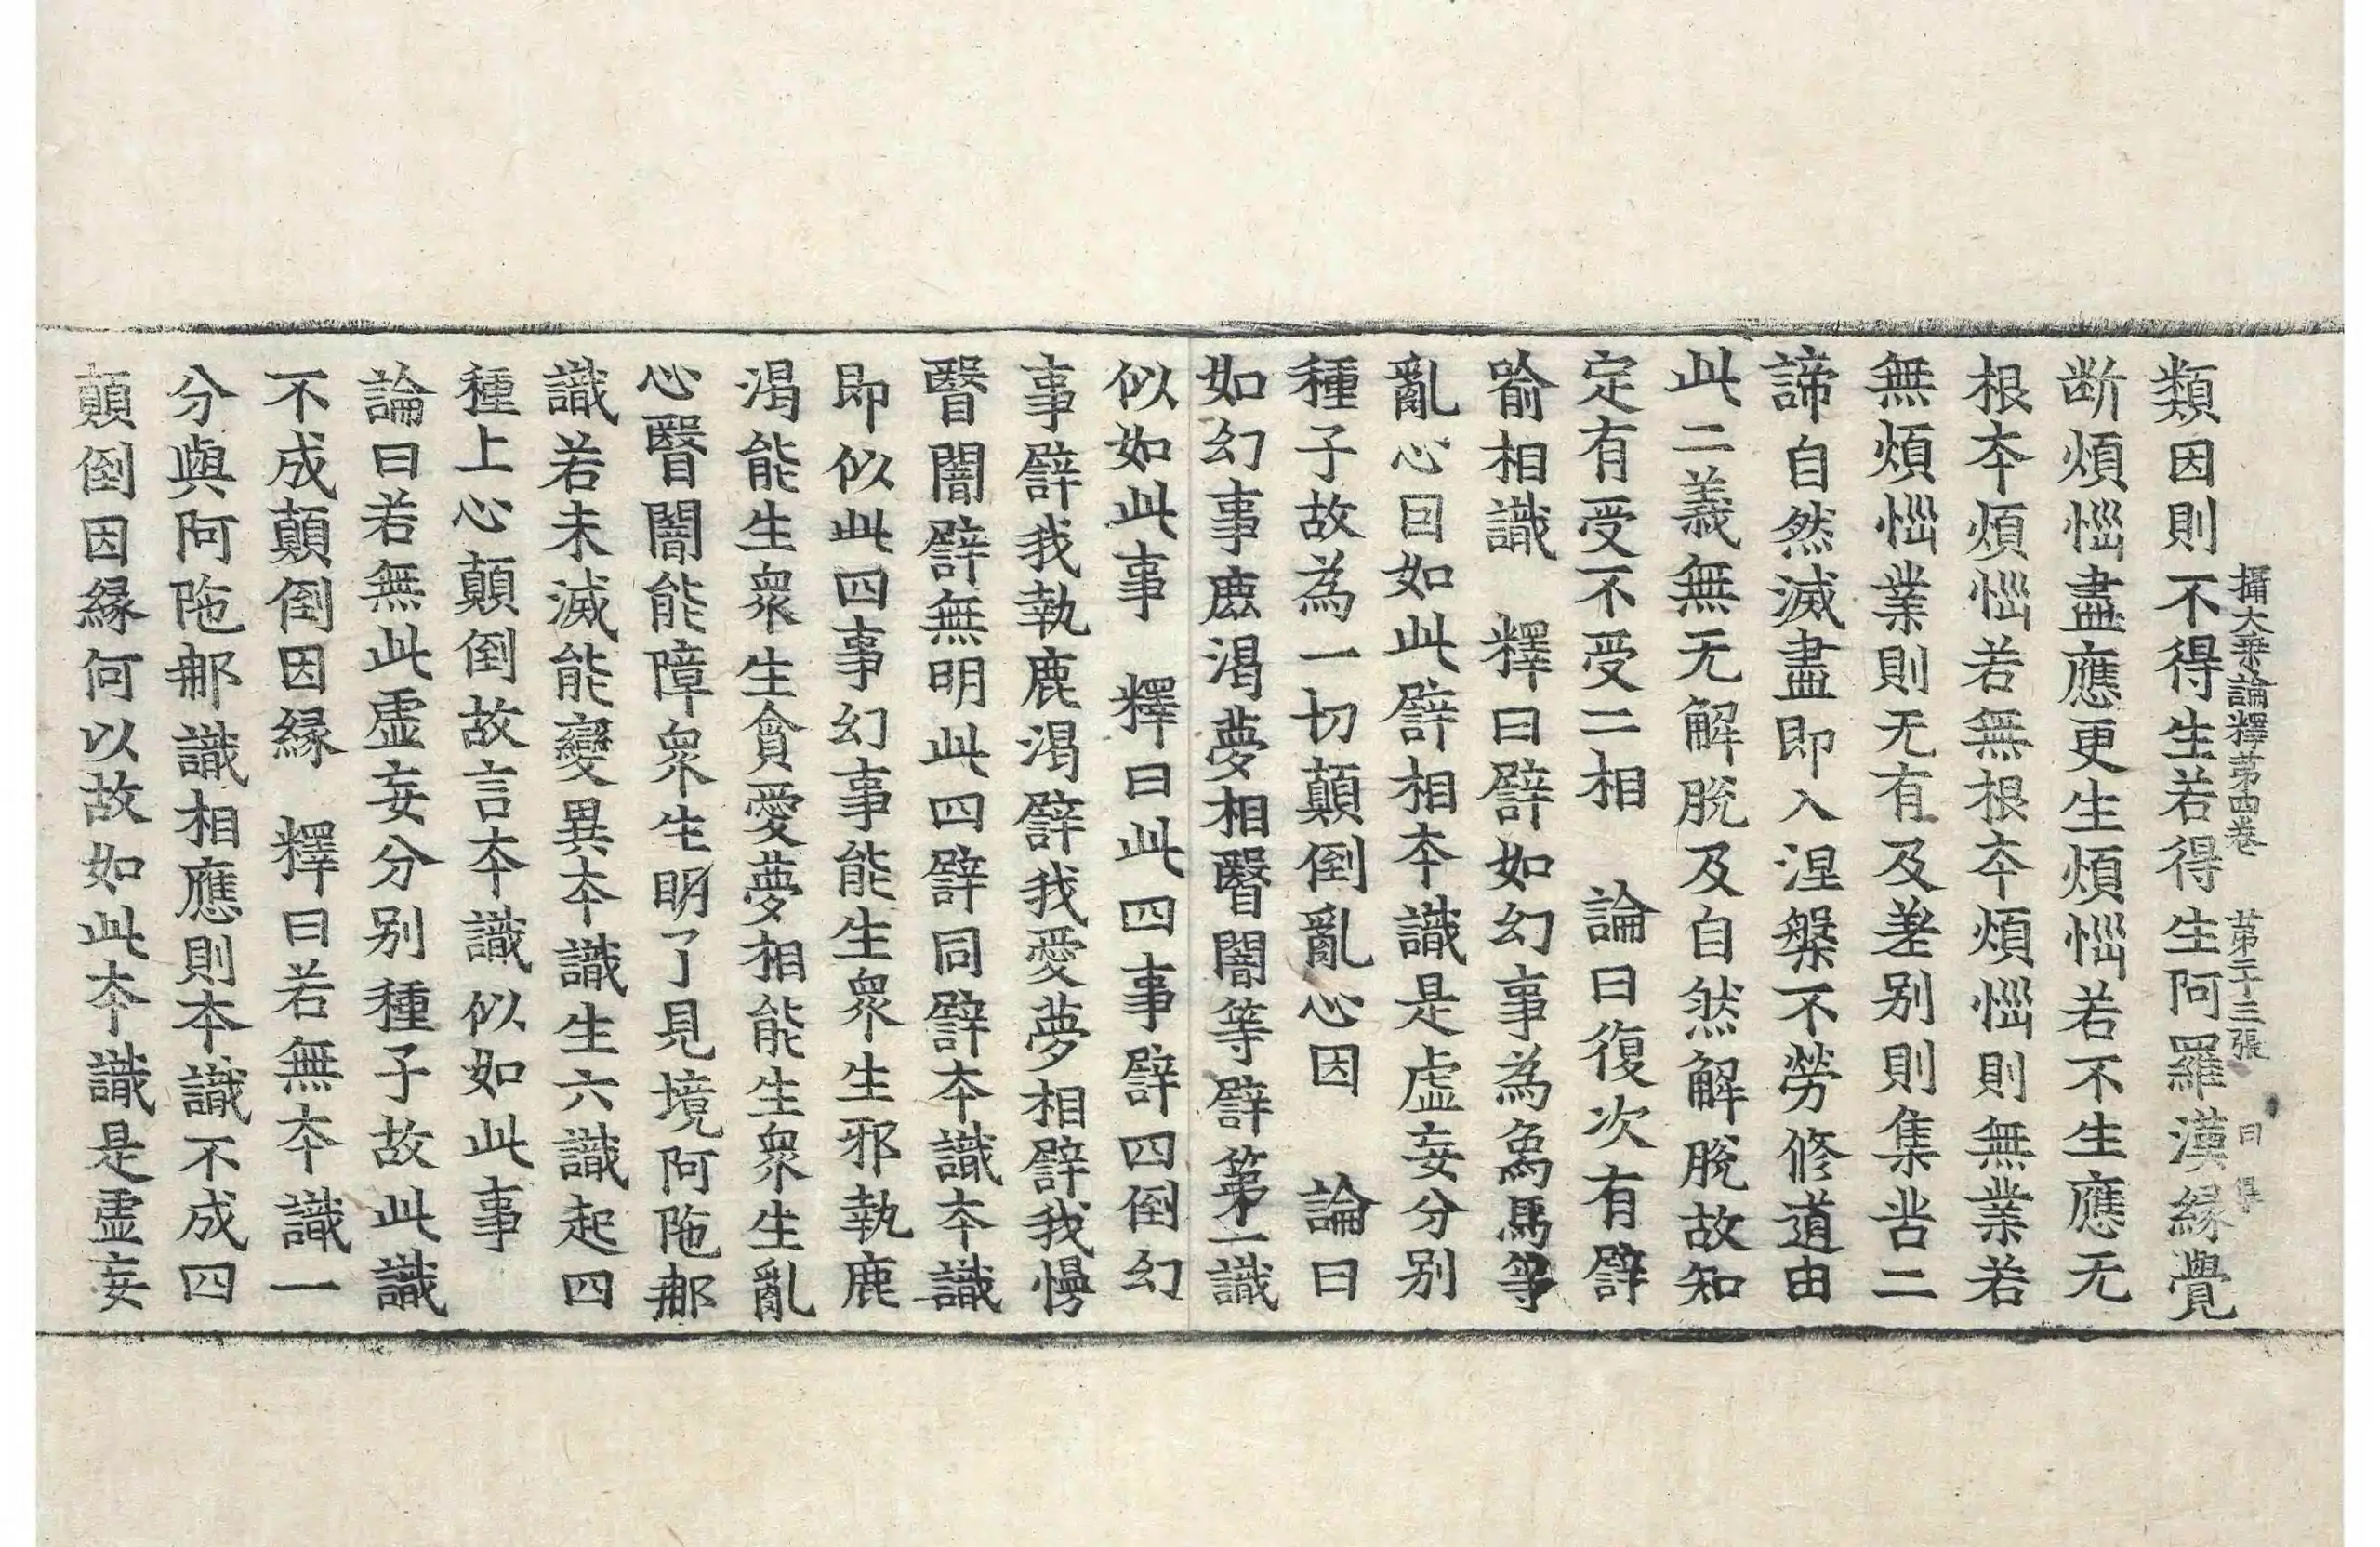 攝大乗論釋第四巻　第二十三張　曰
類因則不得生若得生阿羅漢縁覺
断煩惱盡應更生煩惱若不生應无
根夲煩惱若無根夲煩惱則無業若
無煩惱業則无有及差别則集苦二
諦自然滅盡即入涅槃不勞修道由
此二義無无解脫及自然解脫故知
定有受不受二相　論曰復次有譬
喻相識　釋曰譬如幻事為象馬等
亂心因如此譬相夲識是虛妄分别
種子故為一切顛倒亂心因　論曰
如幻事鹿渴夢相瞖闇等譬第一識
似如此事　釋曰此四事譬四倒幻
事譬我執鹿渴譬我愛夢相譬我慢
瞖闇譬無明此四譬同譬夲識夲識
即似此四事幻事能生衆生邪執鹿
渴能生衆生貪愛夢相能生衆生亂
心瞖闇能障衆生明了見境阿陁那
識若未滅能變異夲識生六識起四
種上心顛倒故言夲識似如此事
論曰若無此虛妄分别種子故此識
不成顛倒因縁　釋曰若無夲識一
分與阿陁那識相應則夲識不成四
顛倒因縁何以故如此夲識是虛妄